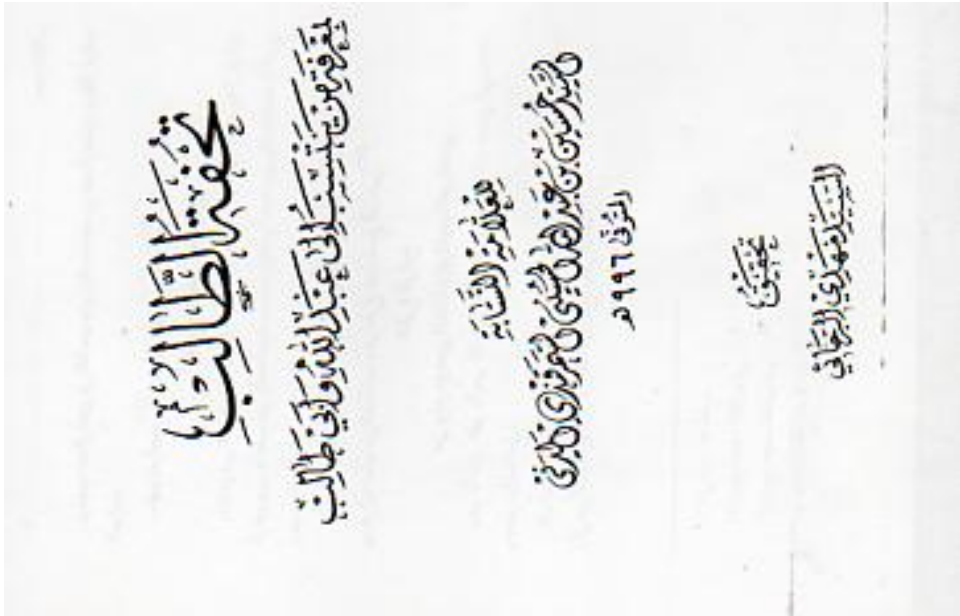 تحفة الطالب
بمعرفة من ينتسب إلى عبد الله وأبي طالب
للعلامة النسابة
السيد حسين بن عبد الله الحسيني السمرقندي المدني
المتوفى ٩٩٦ هـ
تحقيق
السيد مهدي الرجائي